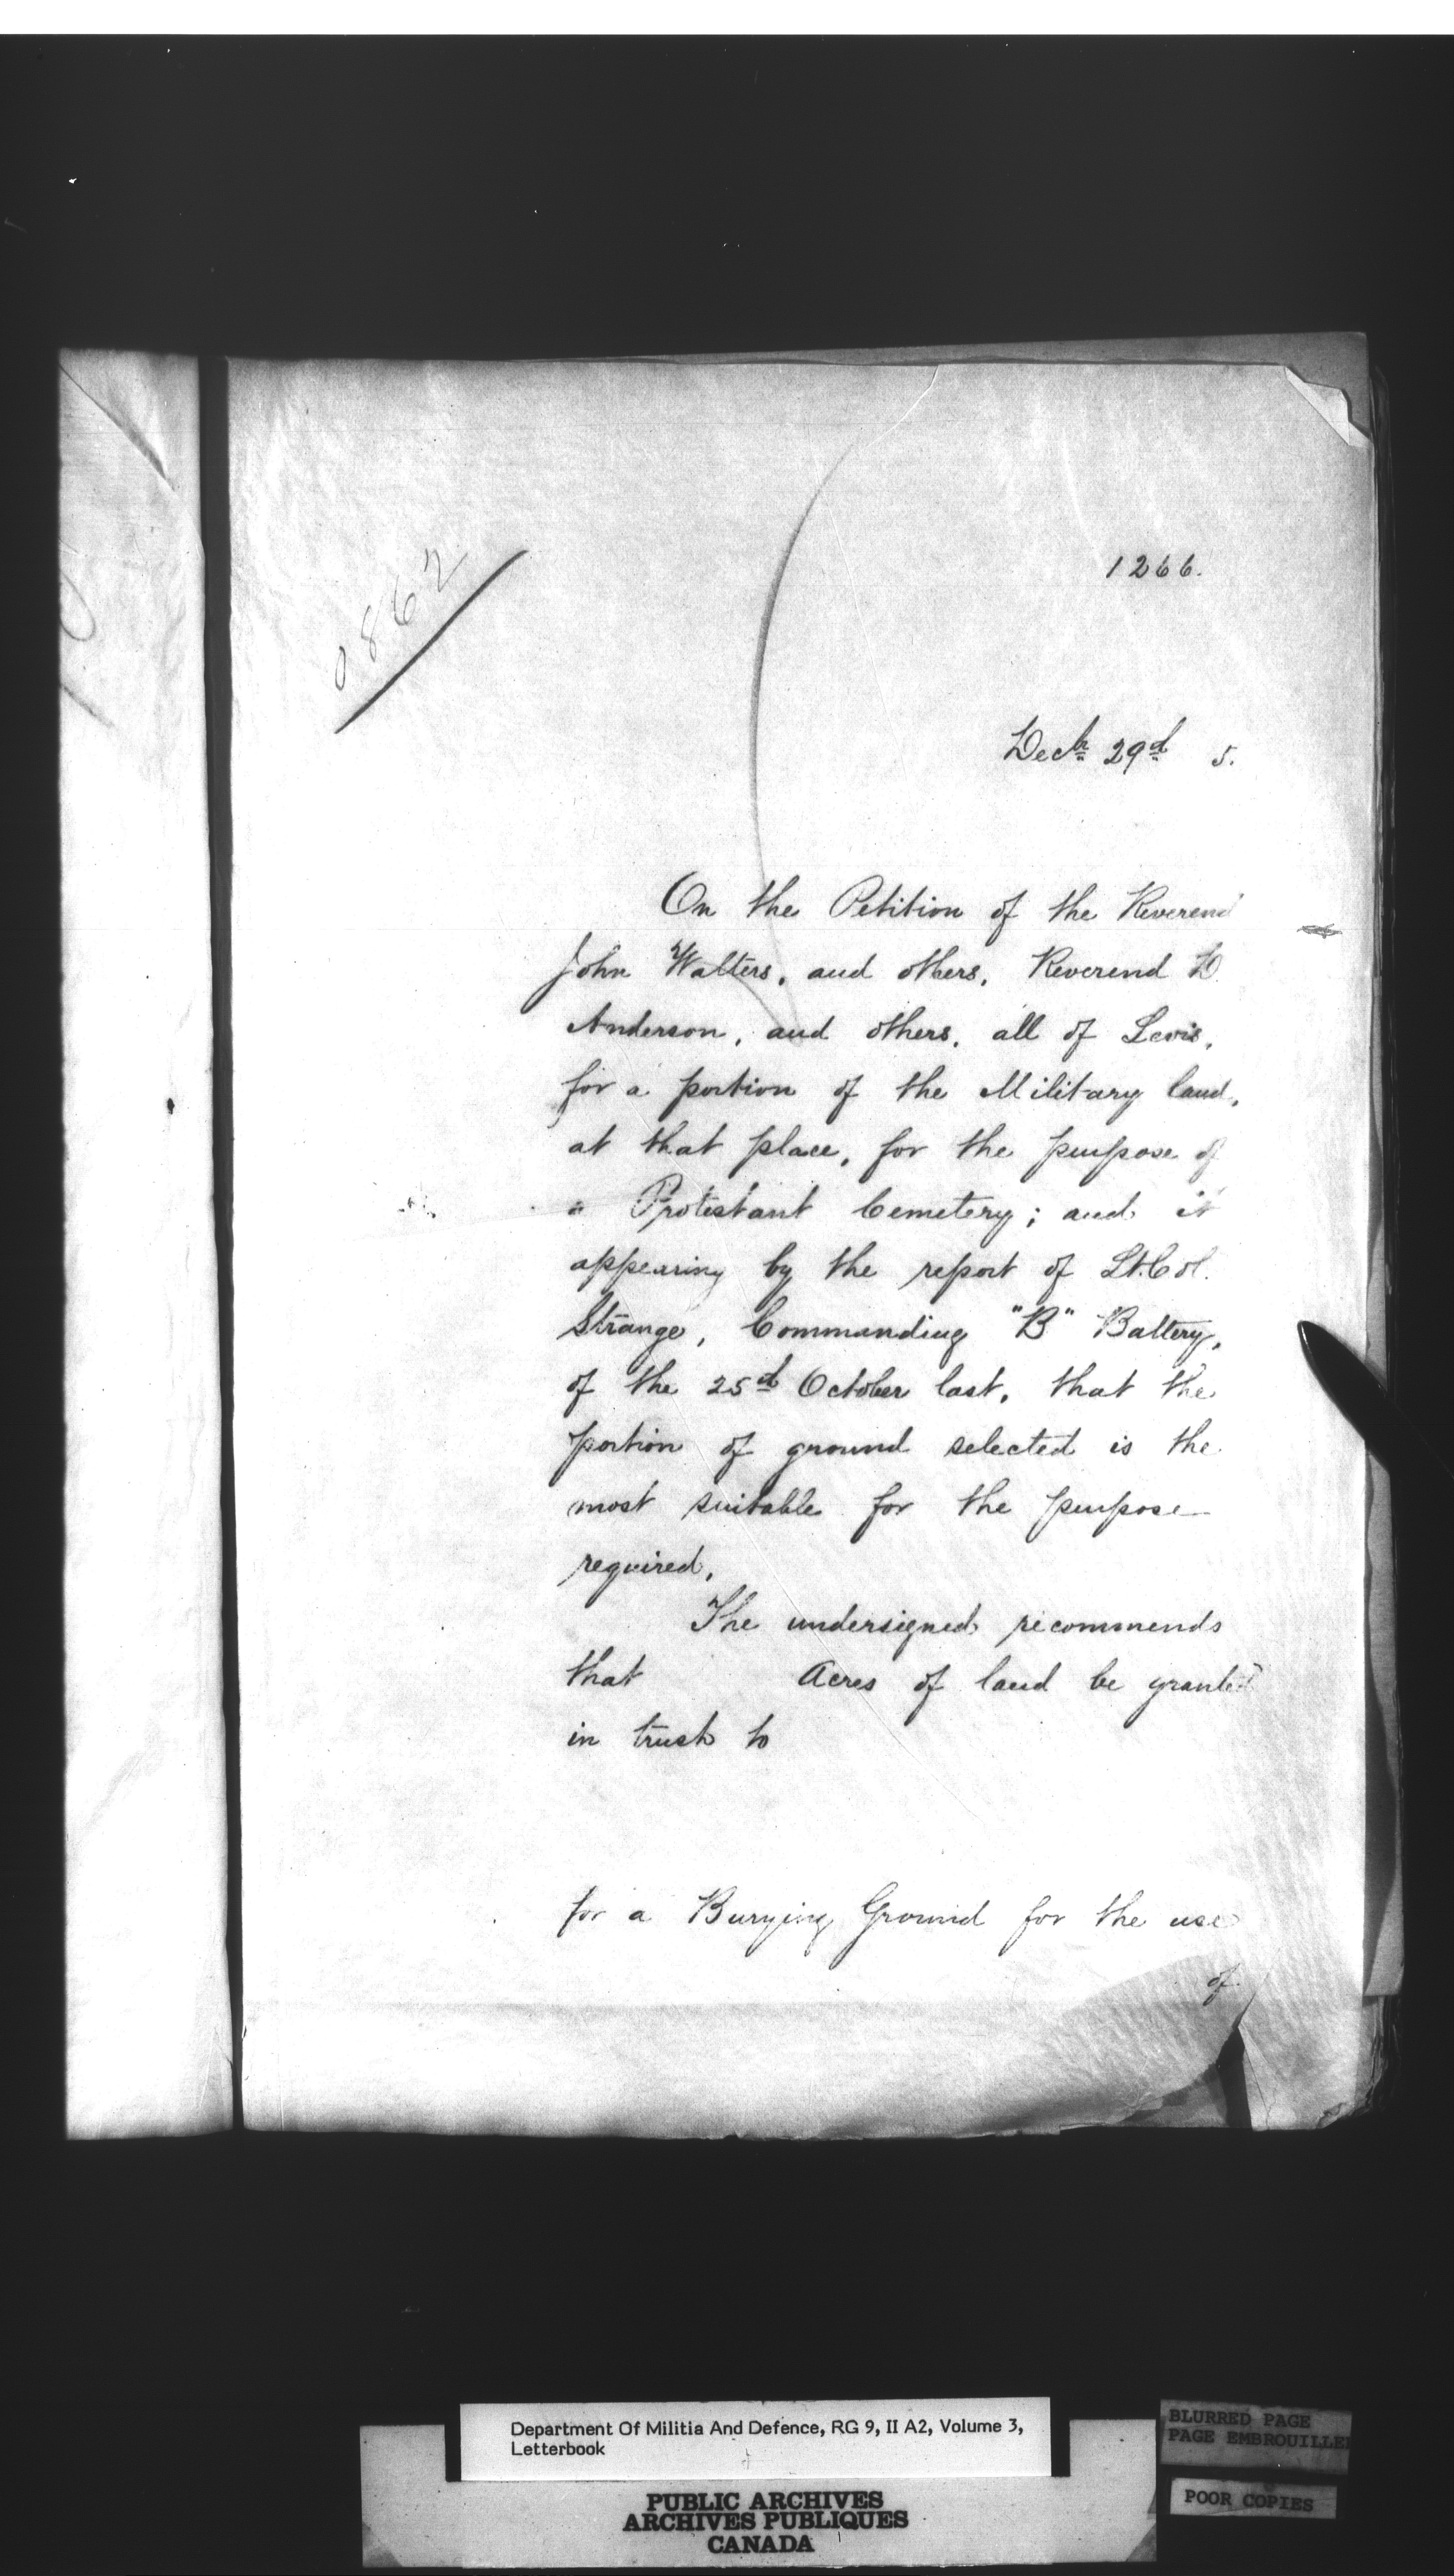 0862
1266.
Decbr 29d 5.
On the Petition of the Reverend
John Walters, and others, Reverend D.
Anderson, and others, all of Levis,
for a portion of the Military land,
at that place, for the purpose of
a Protestant Cemetery; and it
appearing by the report of Lt. Col.
Strange, Commanding "B" Battery,
of the 25d October last, that the
portion of ground selected is the
most suitable for the purpose
required,
The undersigned recommends
that Acres of land be granted
in trust to
for a Burying Ground for the use
of
Department Of Militia And Defence, RG 9, II A2, Volume 3,
Letterbook
BLURRED PAGE
PAGE EMBROUILLEE
POOR COPIES
PUBLIC ARCHIVES
ARCHIVES PUBLIQUES
CANADA